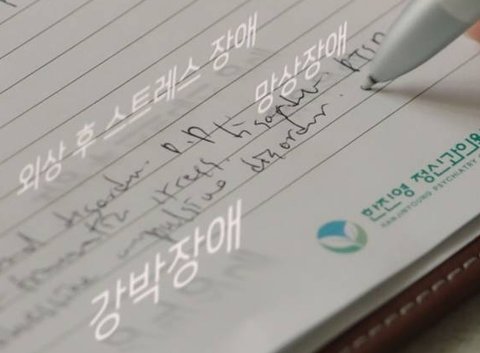 외상 후 스트레스 장애
망상장애
disorder. P.P disorder. PTSD
traumatic stress
impulsive disorder.
강박장애
한진영 정신과의원
HANJINYOUNG PSYCHIATRY